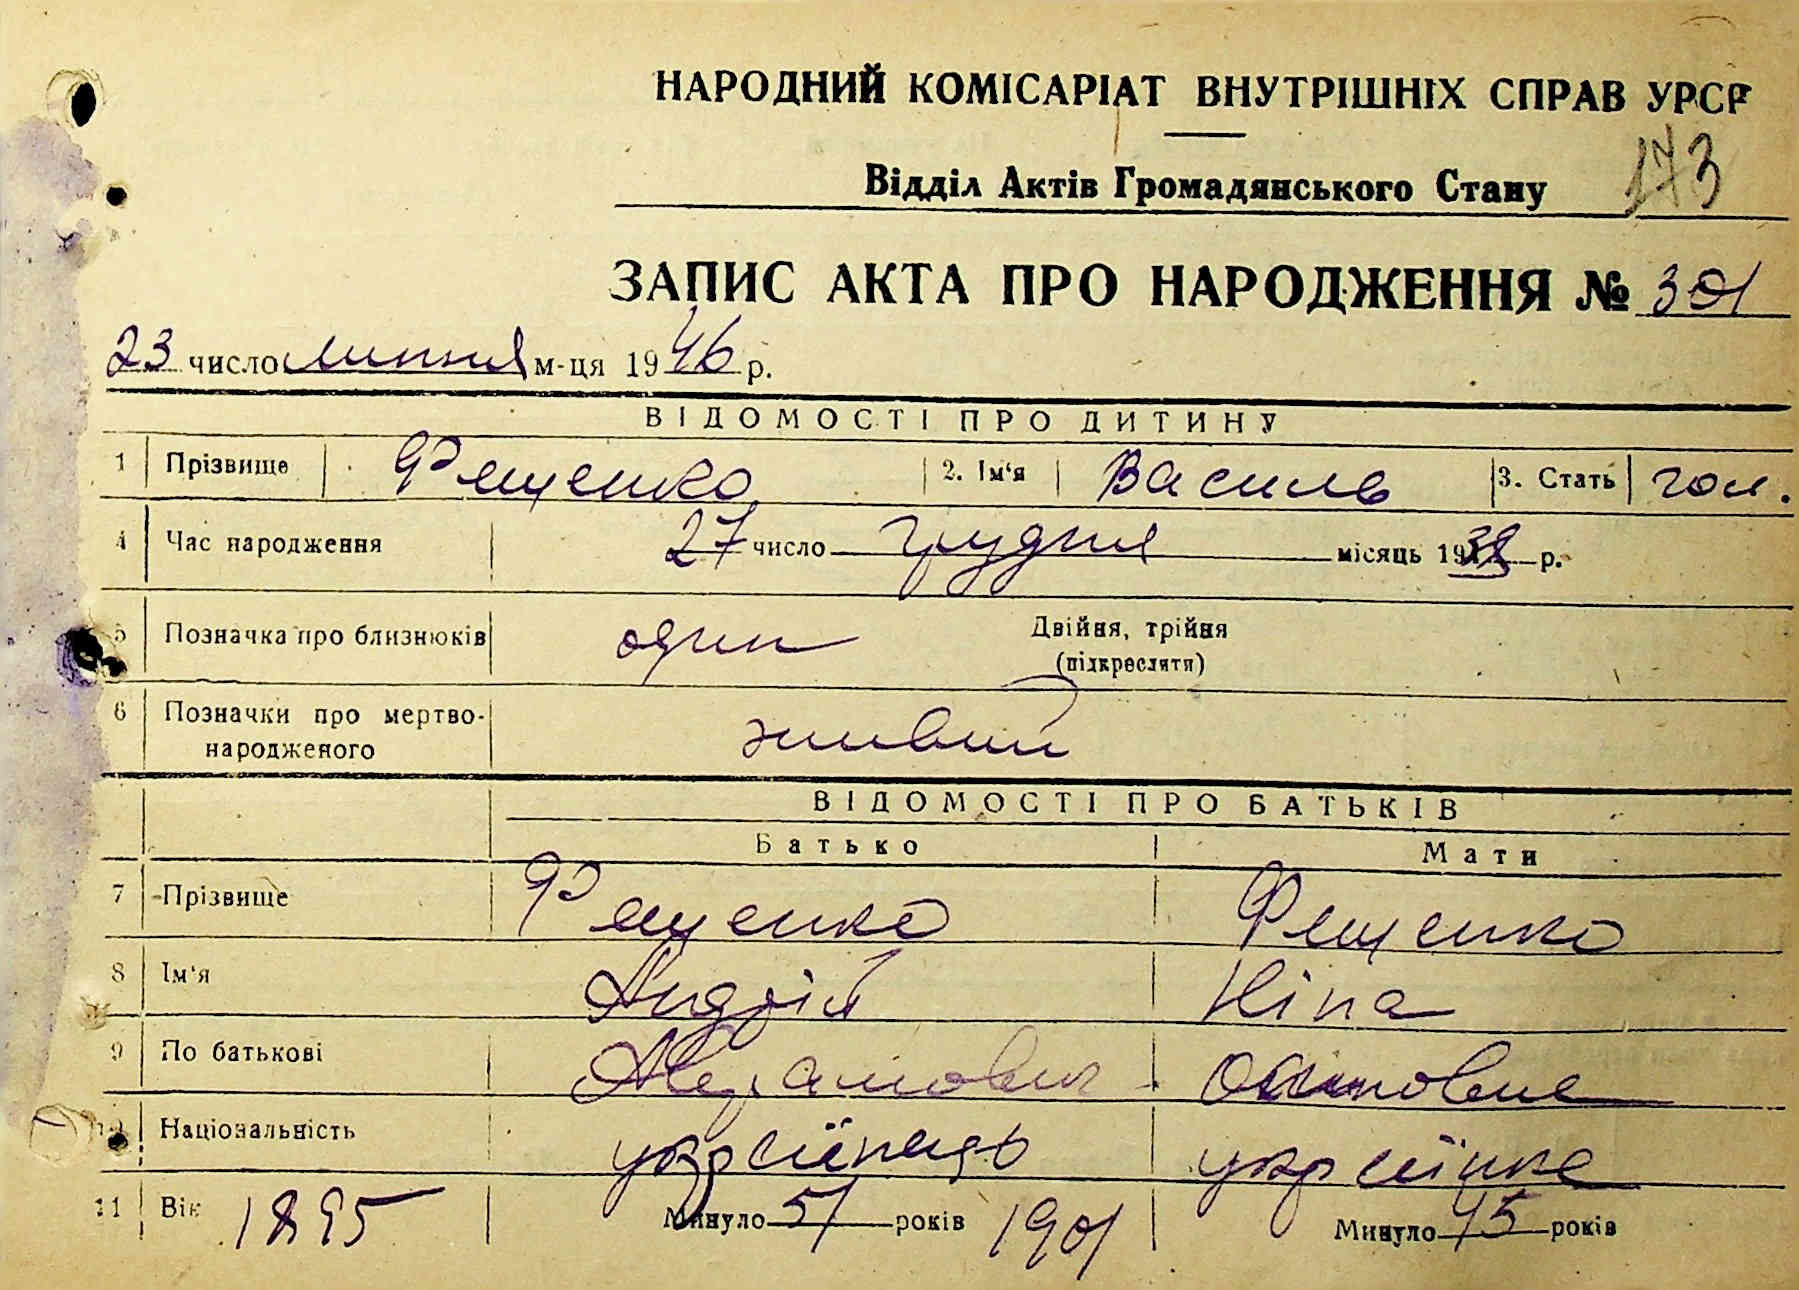 НАРОДНИЙ КОМІСАРІАТ ВНУТРІШНІХ СПРАВ УРСР
173
Відділ Актів Громадянського Стану
ЗАПИС АКТА ПРО НАРОДЖЕННЯ № 301
23 число липня м-ця 1946 р.
ВІДОМОСТІ ПРО ДИТИНУ
1 Прізвище Фещенко 2. Ім'я Василь 3. Стать чол.
4 Час народження 27 число грудня місяць 1938 р.
5 Позначка про близнюків один Двійня, трійня
(підкреслити)
6 Позначки про мертво-
народженого живий
ВІДОМОСТІ ПРО БАТЬКІВ
Батько Мати
7 Прізвище Фещенко Фещенко
8 Ім'я Андрій Ніна
9 По батькові
10 Національність українець українка
11 Вік 1895 Минуло 51 років 1901 Минуло 45 років